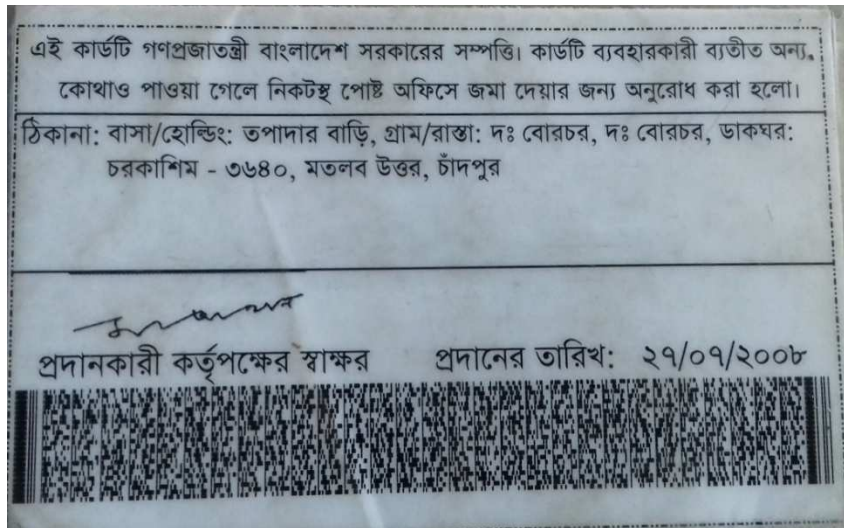 এই কার্ডটি গণপ্রজাতন্ত্রী বাংলাদেশ সরকারের সম্পত্তি। কার্ডটি ব্যবহারকারী ব্যতীত অন্য
কোথাও পাওয়া গেলে নিকটস্থ পোষ্ট অফিসে জমা দেয়ার জন্য অনুরোধ করা হলো।
ঠিকানা: বাসা/হোল্ডিং: তপাদার বাড়ি, গ্রাম/রাস্তা: দঃ বোরচর, দঃ বোরচর, ডাকঘর:
চরকাশিম - ৩৬৪০, মতলব উত্তর, চাঁদপুর
প্রদানকারী কর্তৃপক্ষের স্বাক্ষর প্রদানের তারিখ: ২৭/০৭/২০০৮